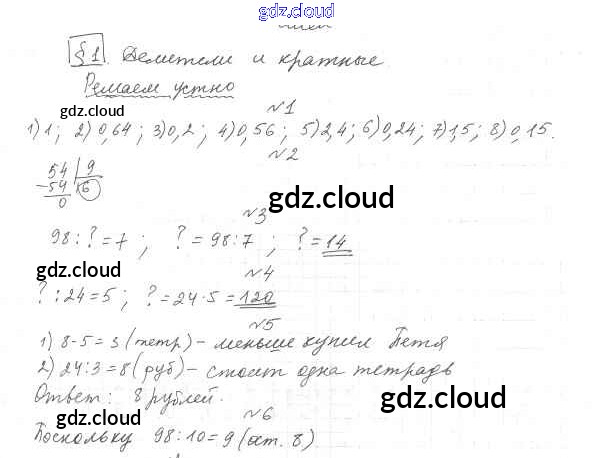 gdz.cloud
§1. Делители и кратные
Решаем устно
gdz.cloud
№1
1) 1; 2) 0,64; 3) 0,2; 4) 0,56; 5) 2,4; 6) 0,24; 7) 1,5; 8) 0,15.
№2
54 | 9
-54 6
0
gdz.cloud
№3
98:?=7; ?=98:7; ?=14
gdz.cloud
gdz.cloud
№4
?:24=5; ?=24·5=120
№5
1) 8-5=3 (тетр) - меньше купил Петя
2) 24:3=8 (руб) - стоит одна тетрадь
Ответ: 8 рублей.
gdz.cloud
gdz.cloud
№6
Поскольку 98:10=9 (ост. 8)